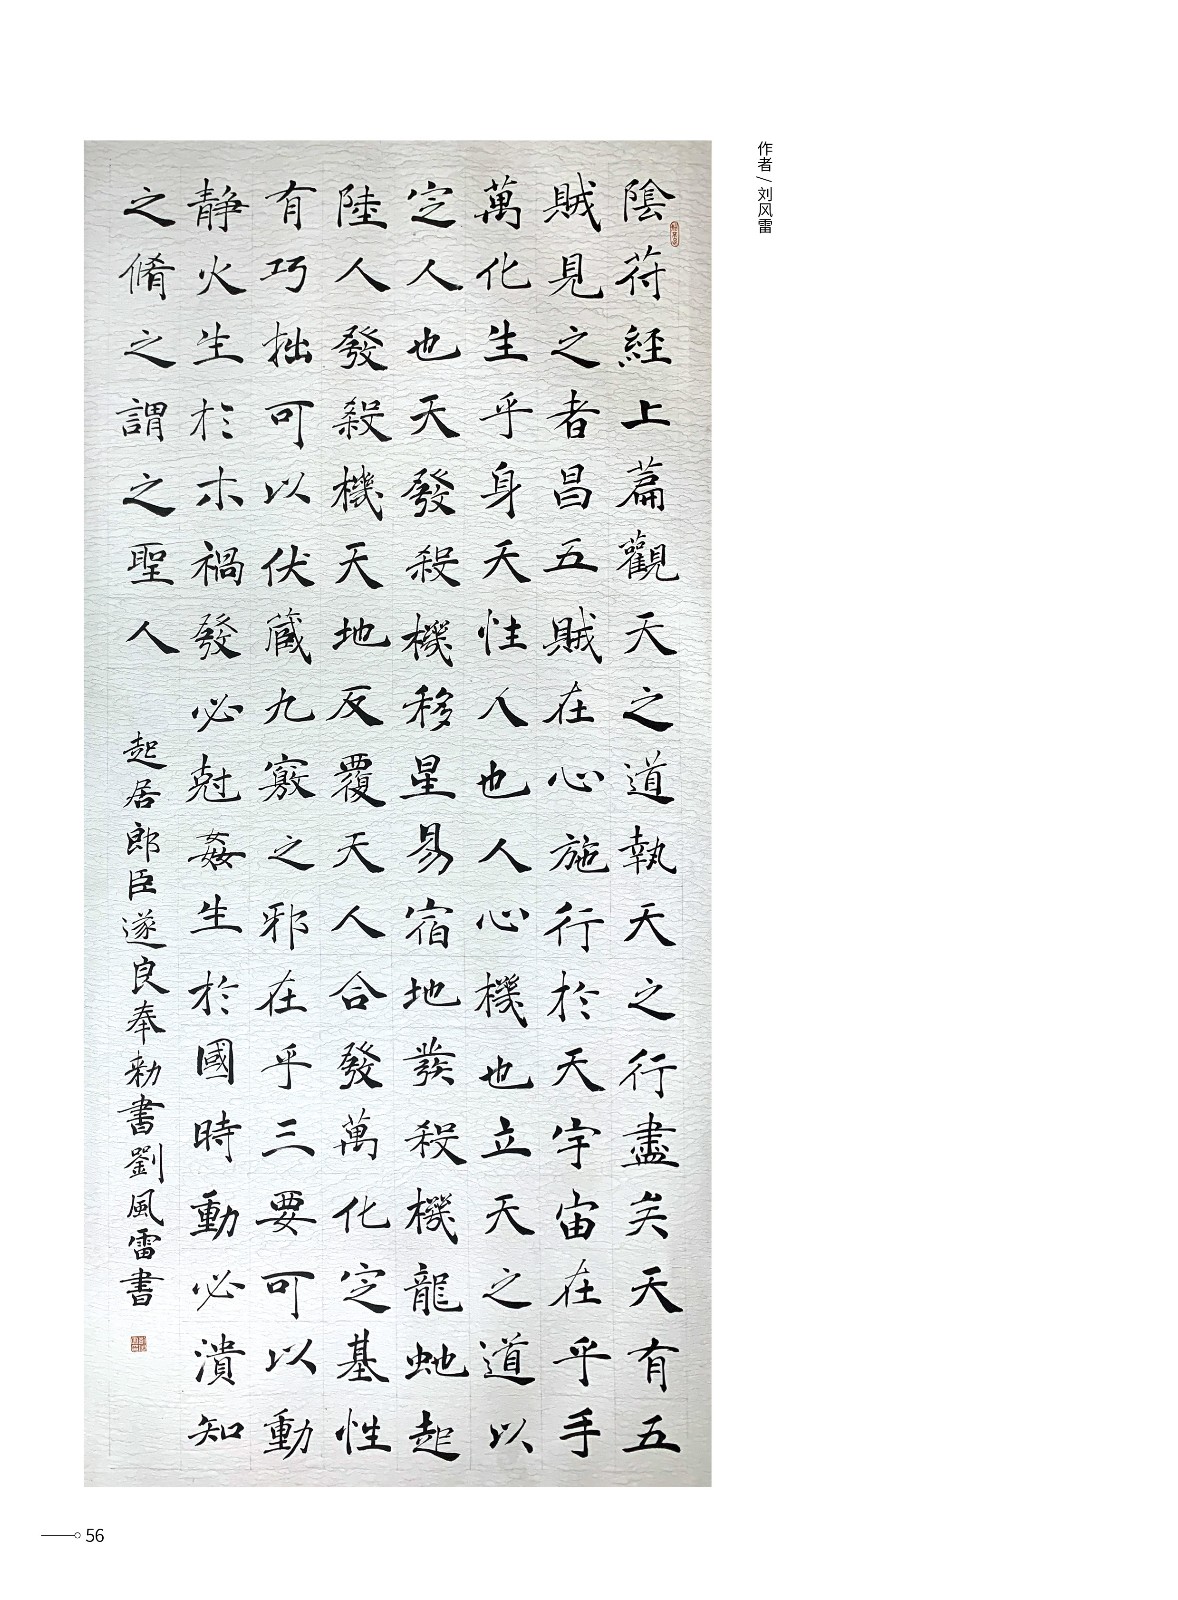 陰符經上篇觀天之道執天之行盡矣天有五
賊見之者昌五賊在心施行於天宇宙在乎手
萬化生乎身天性人也人心機也立天之道以
定人也天發殺機移星易宿地發殺機龍虵起
陸人發殺機天地反覆天人合發萬化定基性
有巧拙可以伏藏九竅之邪在乎三要可以動
静火生於木禍發必尅姦生於國時動必潰知
之脩之謂之聖人
起居郎臣遂良奉勑書劉風雷書
作者/刘风雷
56